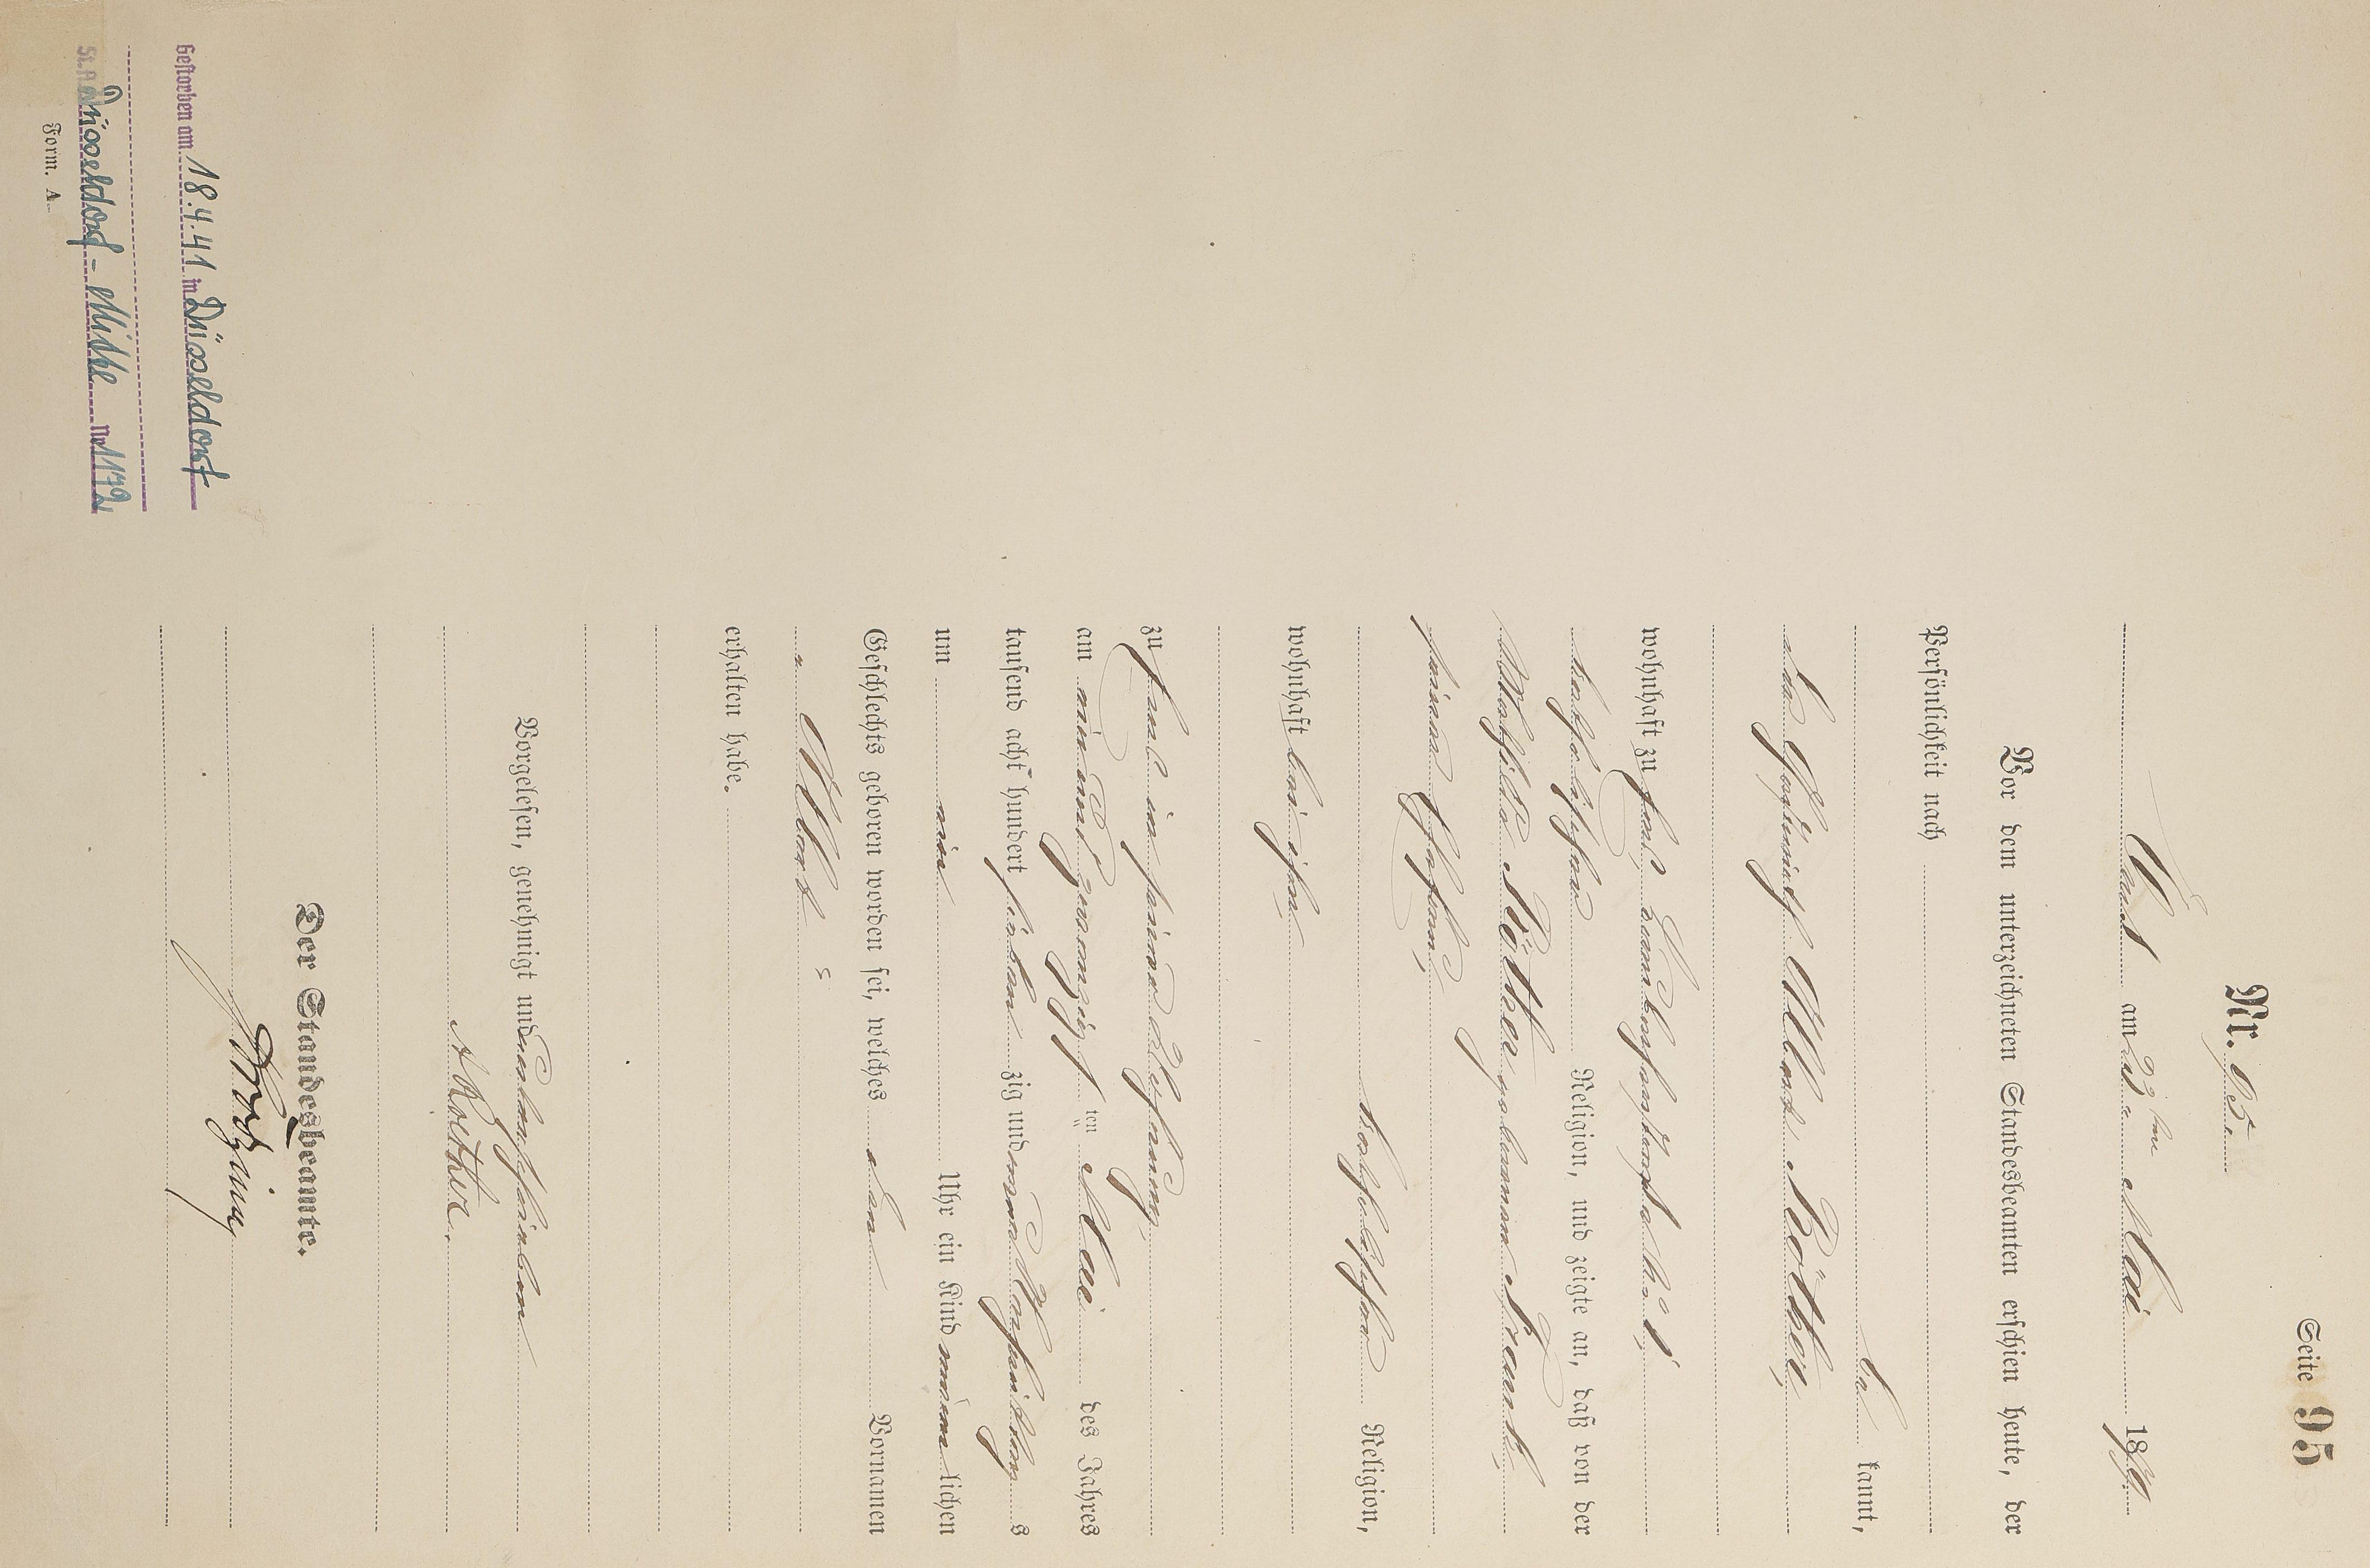 Seite 95
Nr. 95.
am 23ten Mai 1879
Vor dem unterzeichneten Standesbeamten erschien heute, der
Persönlichkeit nach
be kannt,
der Albert Röther,
wohnhaft zu
katholischer Religion, und zeigte an, daß von der
Mathilde Röther geborenen Frank,
seiner Ehefrau,
katholischer Religion,
wohnhaft bei ihm,
zu in seiner Wohnung,
am ein und zwanzigsten Mai des Jahres
tausend acht hundert sieben zig und neun Nachmittags
um ein Uhr ein Kind männ lichen
Geschlechts geboren worden sei, welches den Vornamen
Albert
erhalten habe.
Vorgelesen, genehmigt und unterschrieben
A Roether.
Der Standesbeamte.
Gestorben am 18.4.41 in Düsseldorf
St.A. Düsseldorf-Mitte Nr 1172
Form. A.